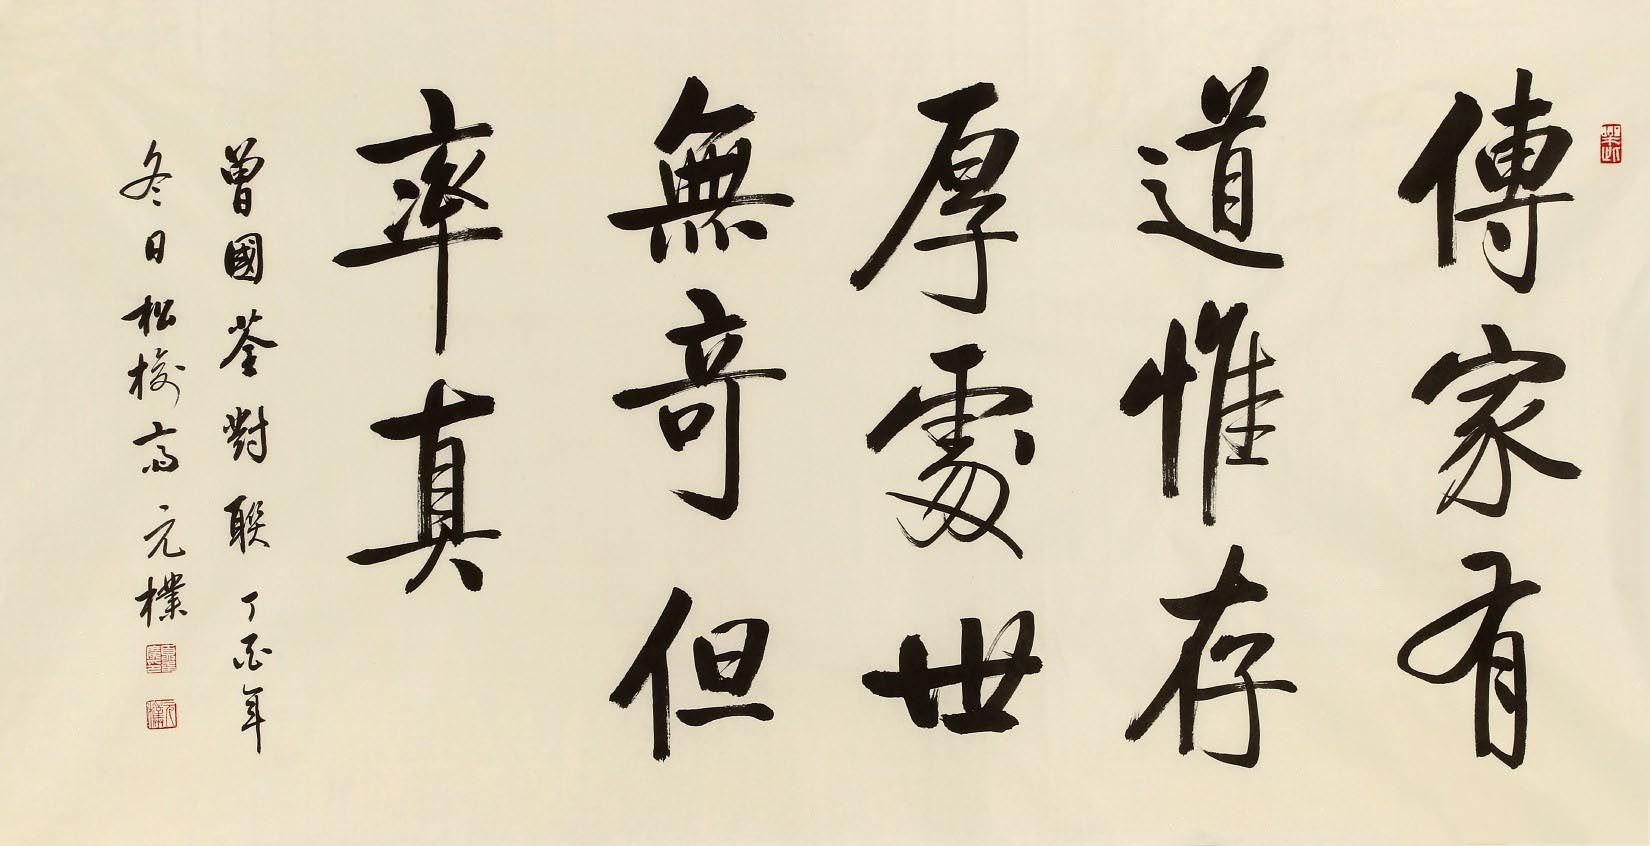 傳家有
道惟存
厚處世
無奇但
率真
曾國荃對聯丁酉年
冬日松梅齋元樸